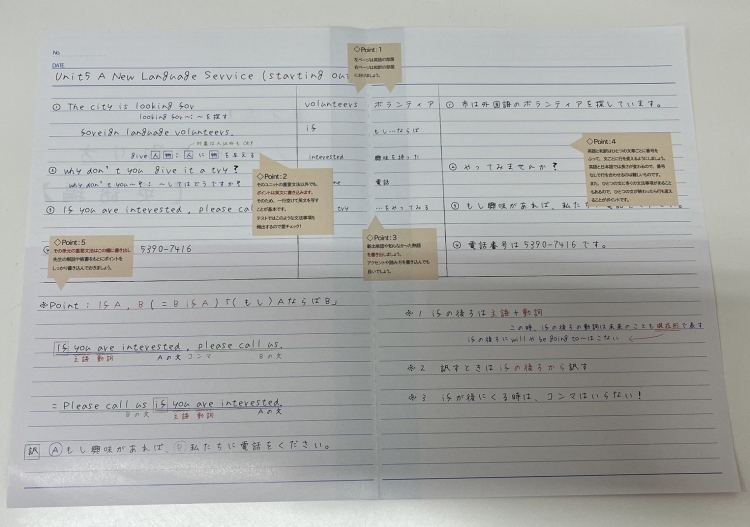 No
DATE
Unit5 A New Language Service (starting out
◇Point:1
左ページは英語の部屋
右ページは和訳の部屋
に分けましょう。
① The city is looking for
looking for〜：〜を探す
foreign language volunteers.
対象は人以外もOK!
give 人 物：人 に 物 を与える
② why don't you give it a try?
why don't you〜?：〜してはどうですか?
③ If you are interested, please call
5390-7416
volunteers ボランティア
if もし…ならば
interested 興味を持った
電話
try …をやってみる
① 市は外国語のボランティアを探しています。
② やってみませんか?
③ もし興味があれば、私た
④ 電話番号は5390-7416です。
◇Point:2
そのユニットの重要文法以外でも、
ポイントは英文に書き込みます。
そのため、一行空けて英文を写す
ことが基本です。
テストではこのような文法事項も
頻出するので要チェック!
◇Point:3
新出単語や知らなかった熟語
を書き出しましょう。
アクセントや読み方を書き込んでも
良いでしょう。
◇Point:4
英語と和訳はひとつの文章ごとに番号を
ふって、文ごとに行を変えるようにしましょう。
英語と日本語では長さが変わるので、番号
なしで行を合わせるのは難しいものです。
また、ひとつの文に多くの文法事項があること
もあるので、ひとつの文が終わったら行を変え
ることがポイントです。
◇Point:5
その単元の重要文法はこの欄に書き出し、
先生の解説や板書をもとにポイントを
しっかり書き込んでおきましょう。
※Point：If A, B (= B if A)「(もし)AならばB」
If you are interested, please call us.
主語 動詞 Aの文 コンマ Bの文
= Please call us if you are interested.
Bの文 主語 動詞 Aの文
訳 Ⓐもし興味があれば、Ⓑ私たちに電話をください。
※1 ifの後ろは主語+動詞
この時、ifの後ろの動詞は未来のことも現在形で表す
ifの後ろにwillやbe going to〜はこない
※2 訳すときはifの後ろから訳す
※3 ifが後にくる時は、コンマはいらない!